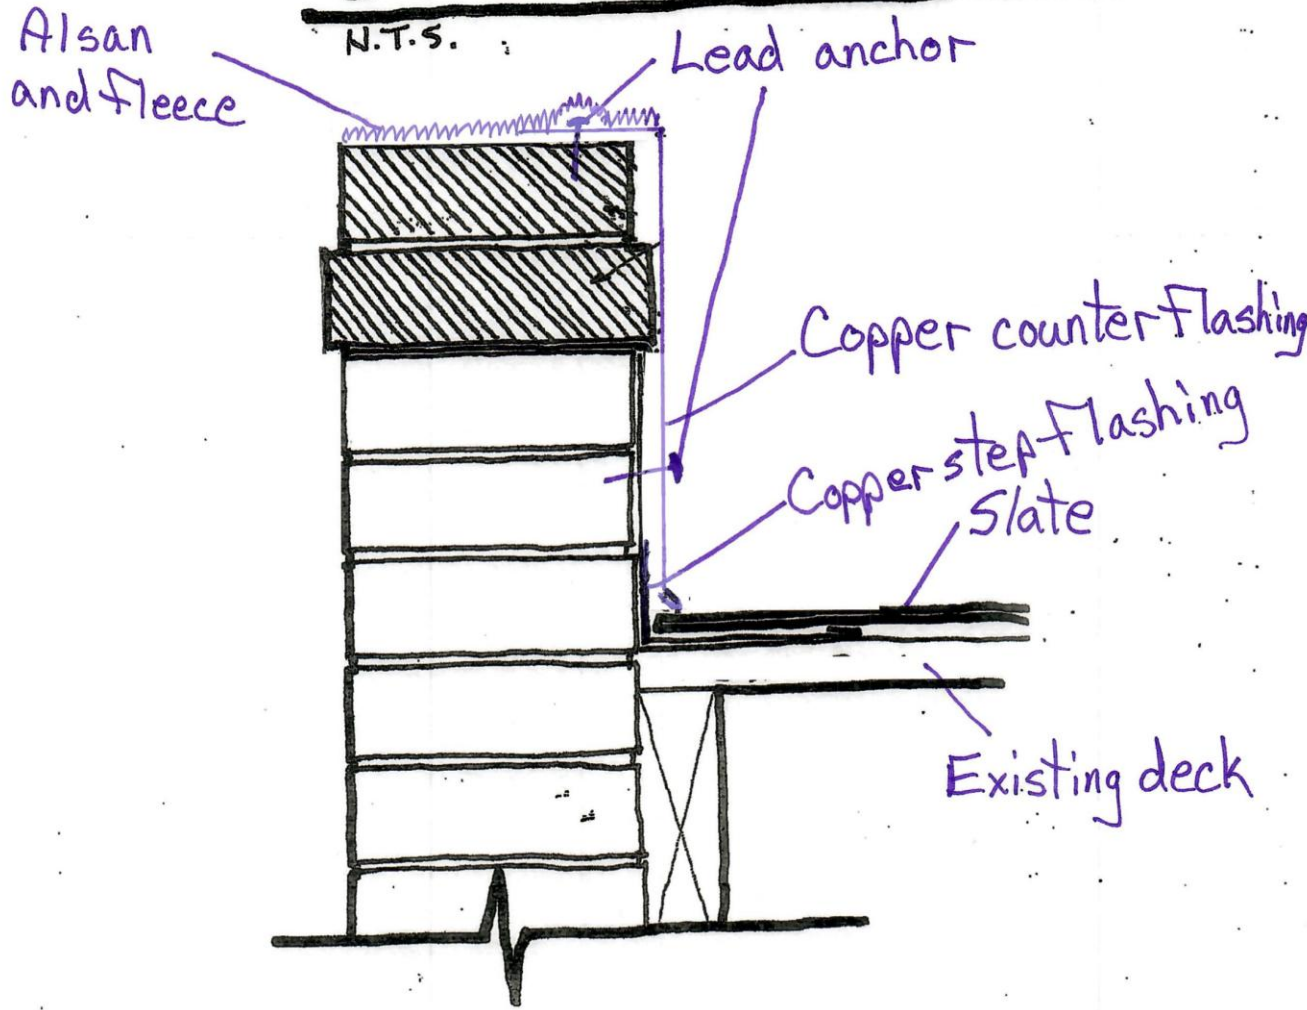 N.T.S.
Alsan
and fleece
Lead anchor
Copper counter flashing
Copper step flashing
Slate
Existing deck